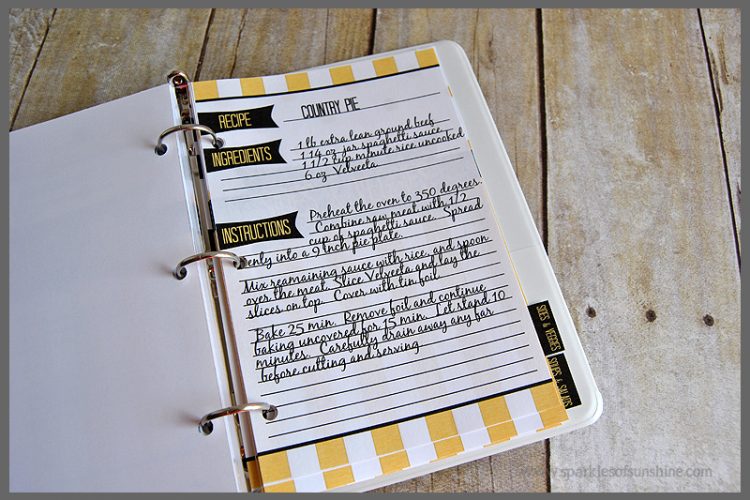 RECIPE
COUNTRY PIE
INGREDIENTS
1 lb extra lean ground beef
1 14 oz jar spaghetti sauce
1 1/2 cup minute rice uncooked
6 oz Velveeta
INSTRUCTIONS
Preheat the oven to 350 degrees.
Combine raw meat with 1/2
cup of spaghetti sauce. Spread
evenly into a 9 inch pie plate.
Mix reamaining sauce with rice, and spoon
over the meat. Slice Velveeta and lay the
slices on top. Cover with tin foil
Bake 25 min. Remove foil and continue
baking uncovered for 15 min. Let stand 10
minutes. Carefully drain away any far
before cutting and serving
SIDES & VEGGIES
SOUPS & SALADS
www.sparklesofsunshine.com